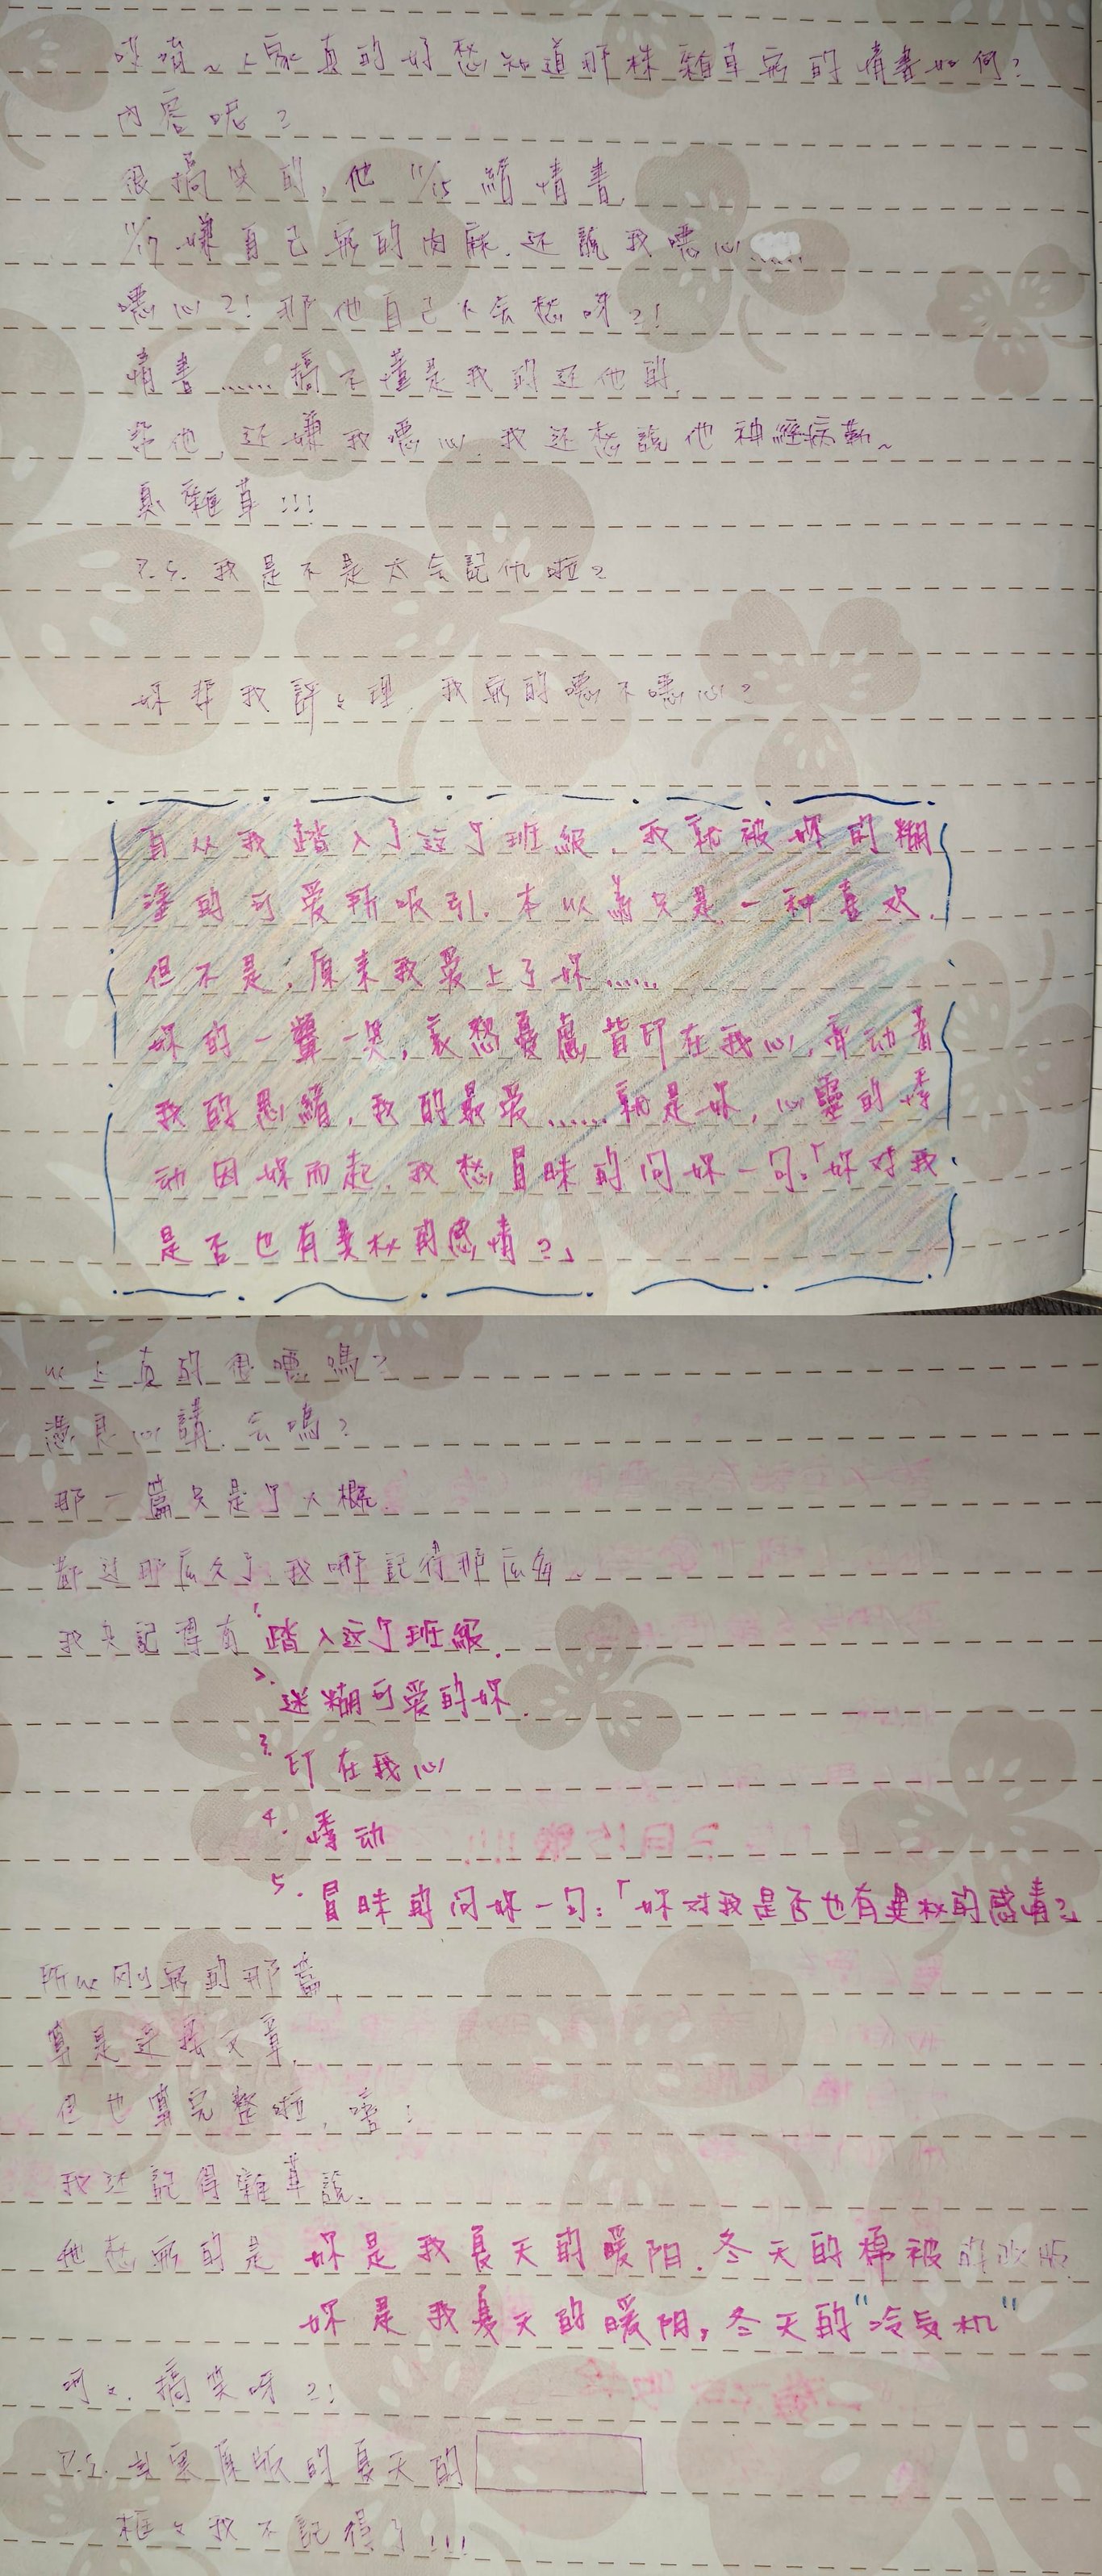 哎唷~人家真的好想知道那株雜草寫的情書如何?
內容呢?
很搞笑的,他11/15給情書,
11/17嫌自己寫的肉麻.还說我噁心......
噁心?!那他自己不会想呀?!
情書......搞不懂是我的还他的,
幫他,还嫌我噁心,我还想說他神經病勒~
臭雜草!!!
P.S.我是不是太会記仇啦?
妳幫我評々理,我寫的噁不噁心?
自从我踏入了這个班級,我就被妳的糊
塗的可爱所吸引.本以為只是一种喜欢,
但不是,原来我爱上了妳......
妳的一顰一笑,哀愁憂慮皆印在我心,牽动着
我的思緒,我的最爱......就是妳,心靈的悸
动因妳而起.我想冒昧的问妳一句:「妳对我
是否也有異样的感情?」
以上真的很噁嗎?
憑良心講.会嗎?
那一篇只是个大概.
都过那庅久了,我哪記得那庅多.
我只記得有1.踏入这个班級.
2.迷糊可爱的妳.
3.印在我心
4.悸动
5.冒昧的问妳一句:「妳对我是否也有異样的感情?」
所以刚寫的那篇,
算是连接文章,
但也算完整啦,嘻!
我还記得雜草說.
他想寫的是 妳是我夏天的暖阳.冬天的棉被的改版
妳是我夏天的暖阳,冬天的"冷気机"
呵々.搞笑呀?!
P.S.其实原版的夏天的
框々我不記得了!!!